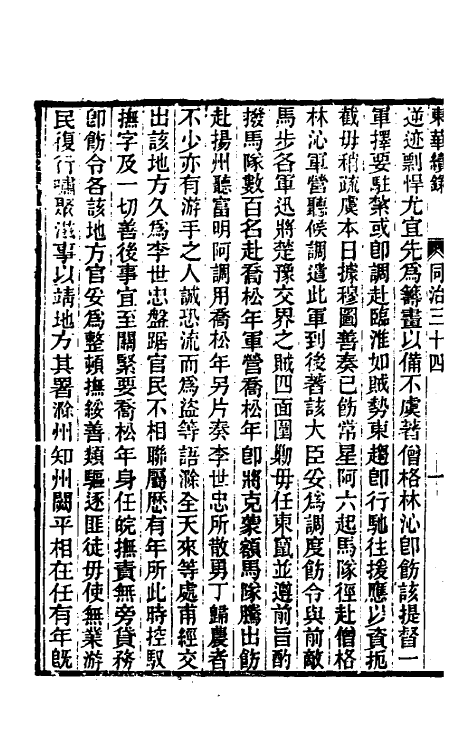 東華續錄
同治三十四
一
逆迹剽悍尤宜先為籌畫以備不虞著僧格林沁即飭該提督一
軍擇要駐紮或即調赴臨淮如賊勢東趨即行馳往援應以資扼
截毋稍疏虞本日據穆圖善奏已飭常星阿六起馬隊徑赴僧格
林沁軍營聽候調遣此軍到後著該大臣妥為調度飭令與前敵
馬步各軍迅將楚豫交界之賊四面圍勦毋任東竄並遵前旨酌
撥馬隊數百名赴喬松年軍營喬松年即將克蒙額馬隊騰出飭
赴揚州聽富明阿調用喬松年另片奏李世忠所散勇丁歸農者
不少亦有游手之人誠恐流而為盜等語滁全天來等處甫經交
出該地方久為李世忠盤踞官民不相聯屬歷有年所此時控馭
撫字及一切善後事宜至關緊要喬松年身任皖撫責無旁貸務
即飭令各該地方官妥為整頓撫綏善類驅逐匪徒毋使無業游
民復行嘯聚滋事以靖地方其署滁州知州關平相在任有年既